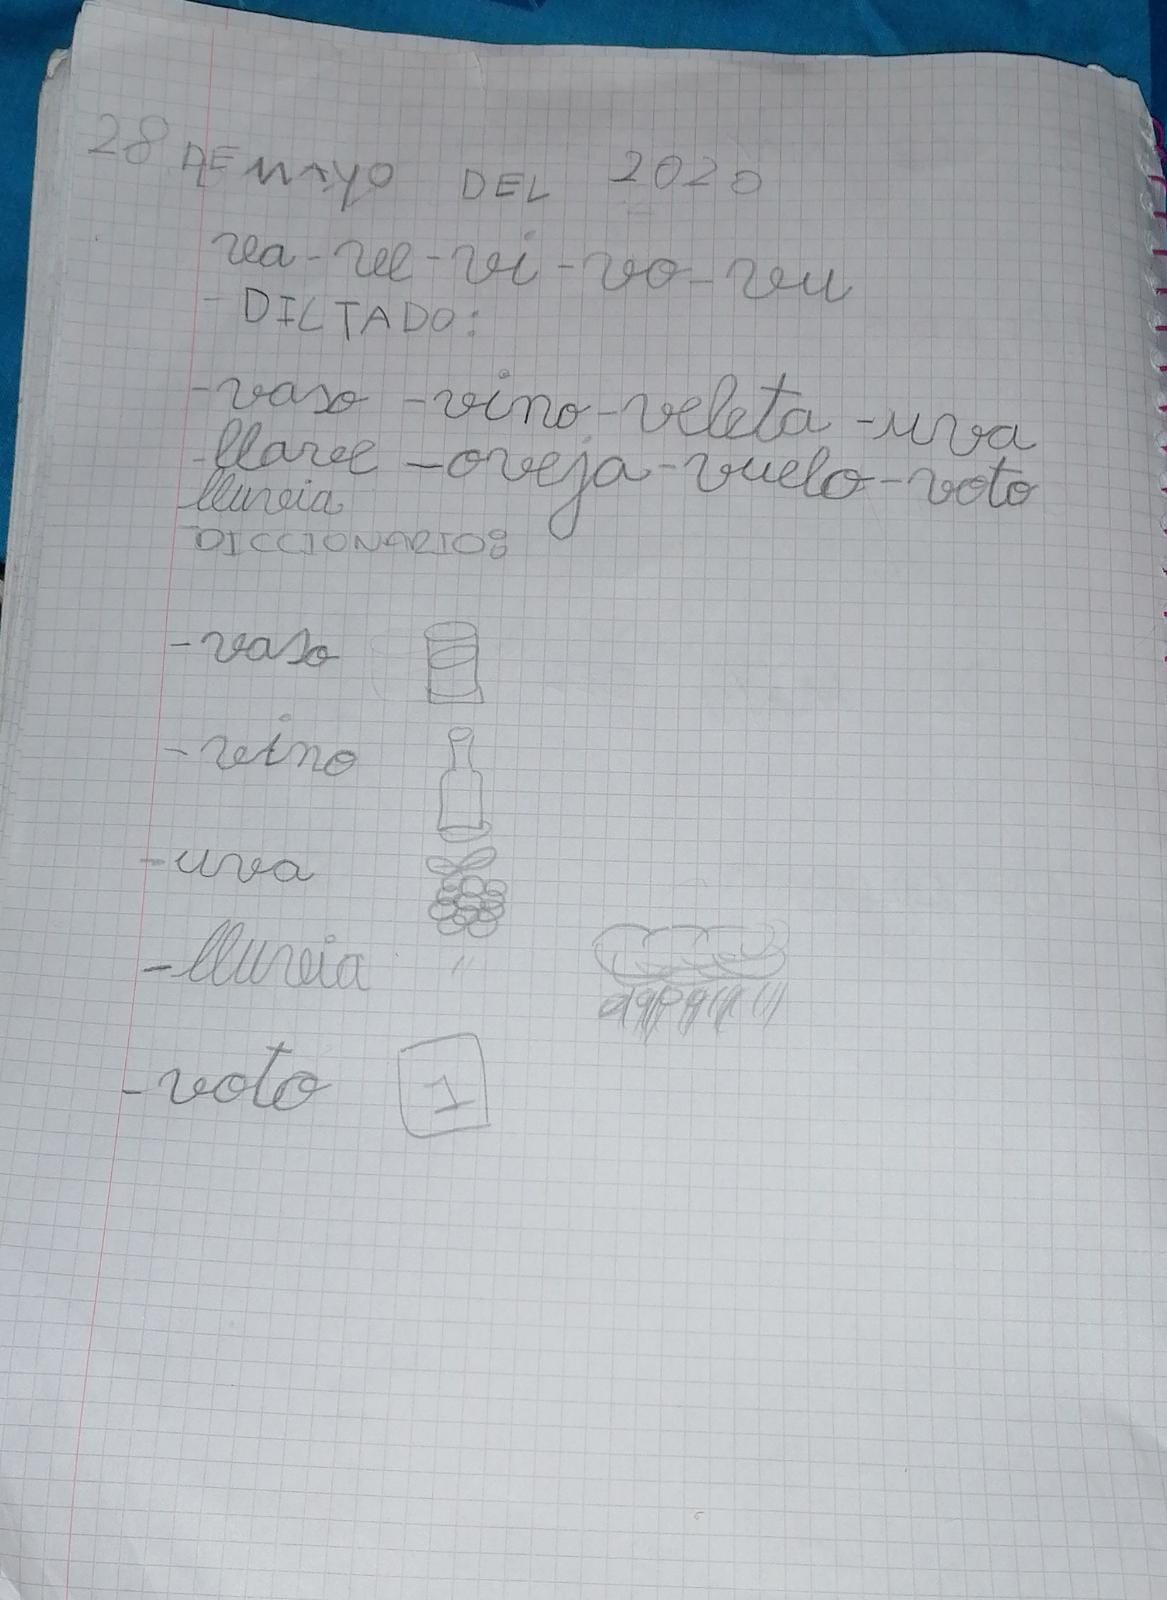 28 DE MAYO DEL 2020
va - ve - vi - vo - vu
- DICTADO:
- vaso - vino - veleta - uva
- llave - oveja - vuelo - voto
lluvia
DICCIONARIO:
- vaso
- vino
- uva
- lluvia
- voto 1